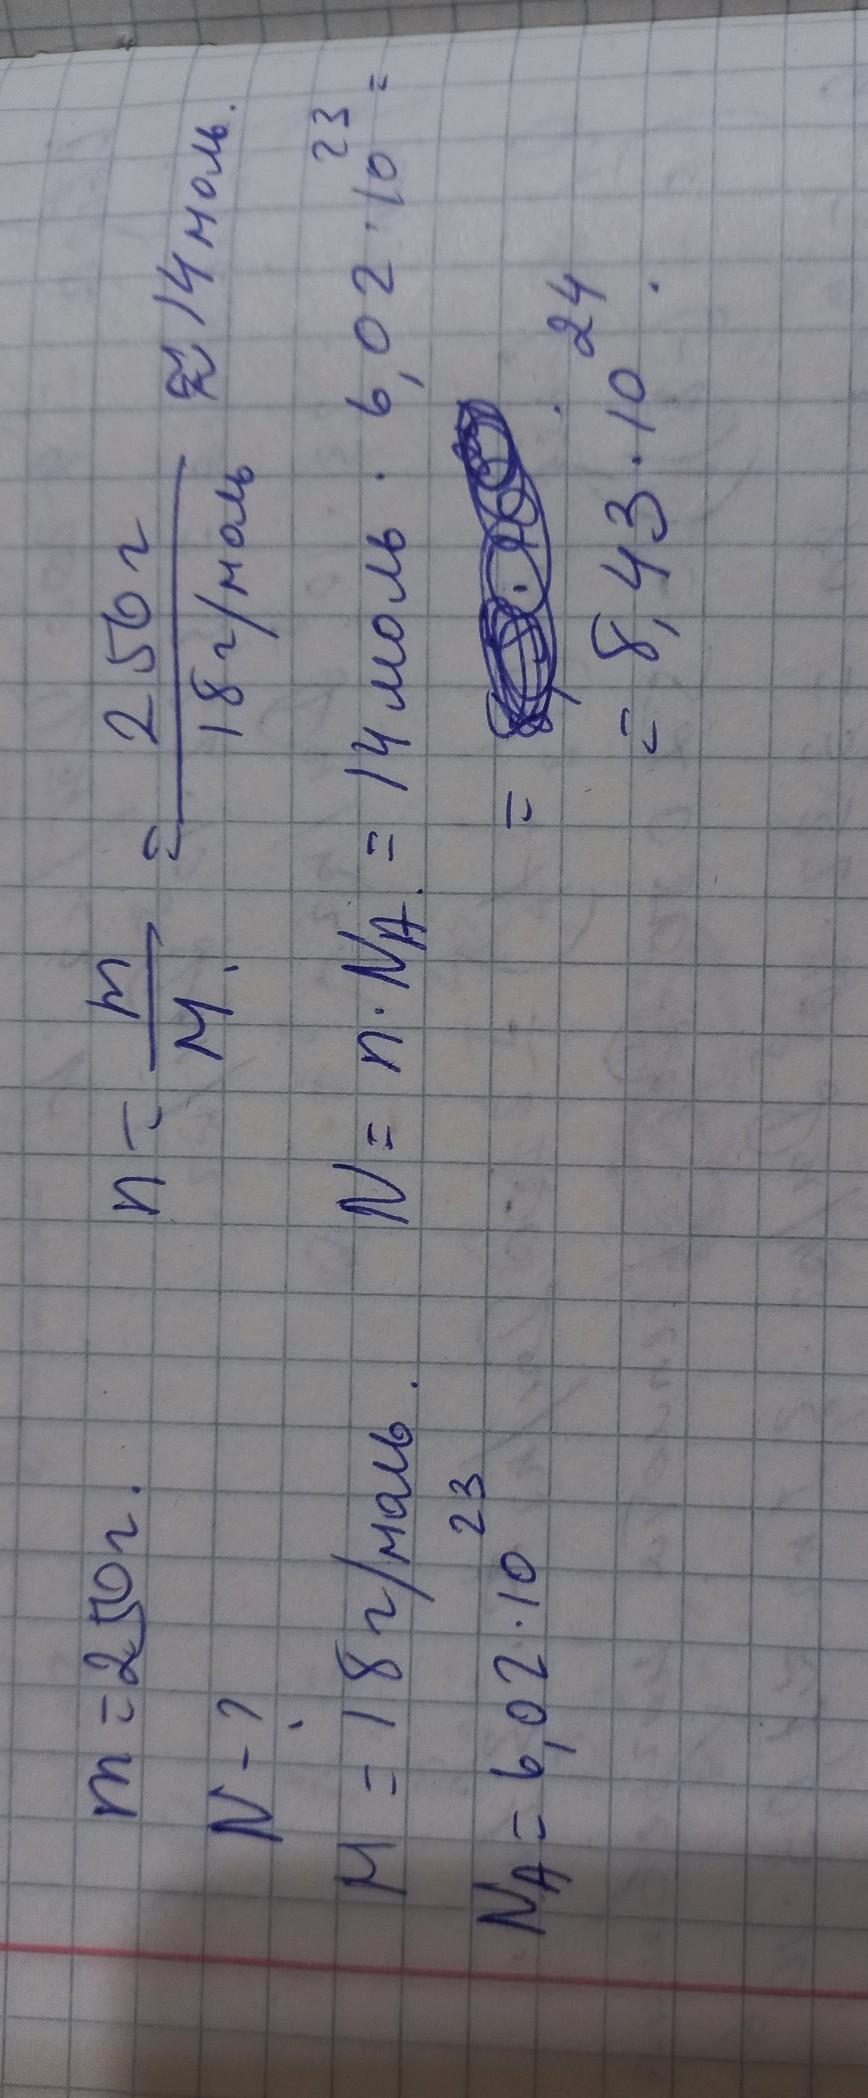 m = 250 г.
N - ?
M = 18 г/моль.
N_A = 6,02 · 10^23
n = m/M. = 250 г / 18 г/моль ≈ 14 моль.
N = n · N_A. = 14 моль · 6,02 · 10^23 =
=
= 8,43 · 10^24.